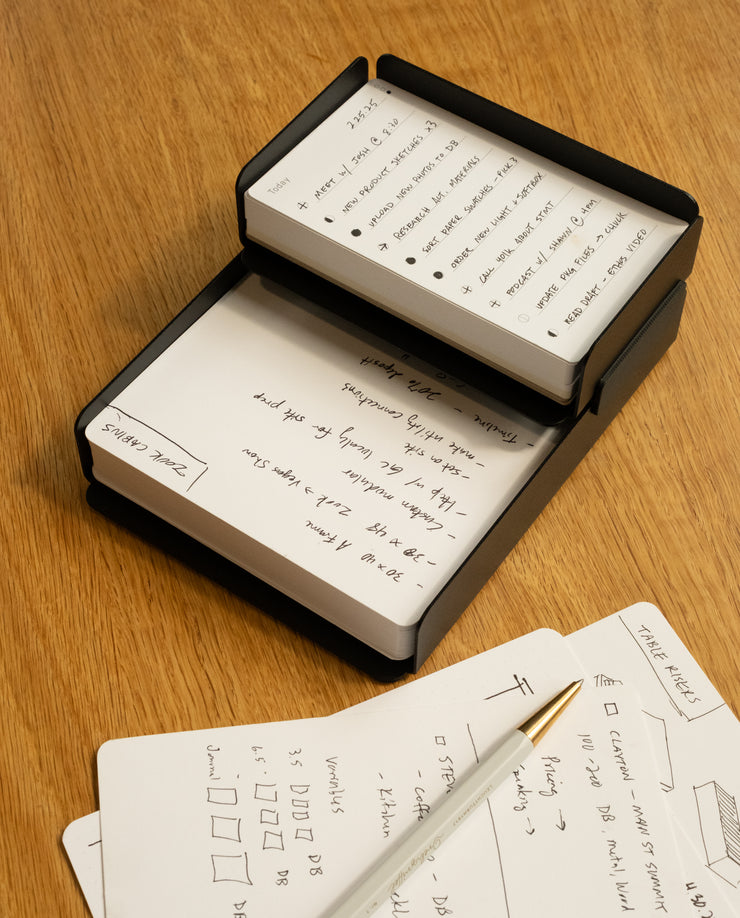 Today
2.25.25
+ MEET w/ JOSH @ 8:30
NEW PRODUCT SKETCHES x3
● UPLOAD NEW PHOTOS TO DB
→ RESEARCH ALT. MATERIALS
● SORT PAPER SWATCHES - PICK 3
● ORDER NEW LIGHT + SOFTBOX
+ CALL 401K ABOUT STMT
+ PODCAST w/ SHAWN @ 4PM
UPDATE PKG FILES → CHUCK
READ DRAFT - ETHS VIDEO
ZOOK CABINS
- 30 x 40 A Frame
- 38 x 48 Zook → Vegas Show
- Custom modular
- Help w/ GC locally for site prep
- set on site
- make utility connections
- Timeline - 20% deposit
TABLE RISERS
CLAYTON - MAIN ST SUMMIT
100 - 200 DB, metal, wood
Pricing →
→
STEV
- Coffe
- Kitchen
- DB
Variables
3.5 DB
6.5 DB
Journal